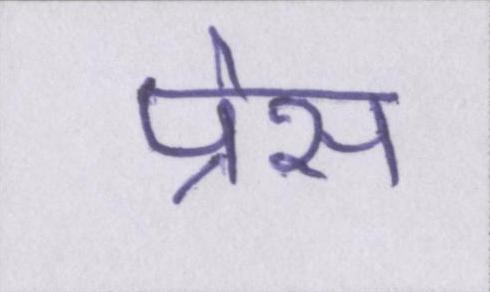 प्रेस